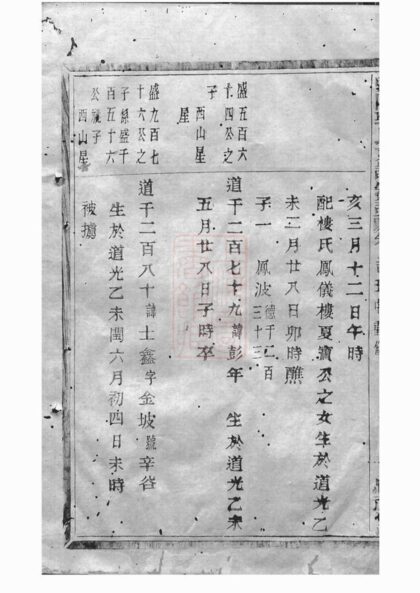 亥三月十二日午時
配樓氏鳳儀樓夏瓚公之女生於道光乙
未二月廿八日卯時醮
子一 鳳波 德千二百三十三
盛五百六十四公之子 西山星
道千二百七十九諱彭年 生於道光乙未
五月廿八日子時卒
盛九百七十六公之子綠盛千百五十六公 子 西山星
道千二百八十諱士鑫字金坡號辛谷
生於道光乙未閏六月初四日未時
被擄